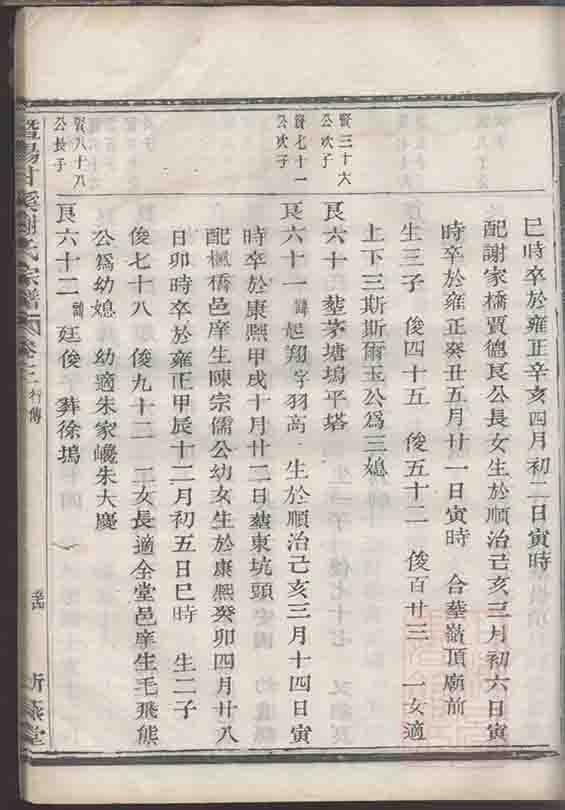 巳時卒於雍正辛亥四月初二日寅時
配謝家橋賈德良公長女生於順治己亥三月初六日寅
時卒於雍正癸丑五月廿一日寅時　合塟嶺頂廟前
生三子　俊四十五　俊五十二　俊百廿三　一女適
上下三斯斯爾玉公爲三媳
賢三十六
公次子
良六十　塟茅塘塢平塔
賢七十一
公次子
良六十一　諱起翔字羽高　生於順治己亥三月十四日寅
時卒於康熙甲戌十月廿二日塟東坑頭
配楓橋邑庠生陳宗儒公幼女生於康熙癸卯四月廿八
日卯時卒於雍正甲辰十二月初五日巳時　生二子
俊七十八　俊九十二　二女長適全堂邑庠生毛飛熊
公爲幼媳　幼適朱家㘔朱大慶
賢八十八
公長子
良六十二　諱廷俊　葬徐塢
暨陽甘溪謝氏宗譜　卷十二　行傳